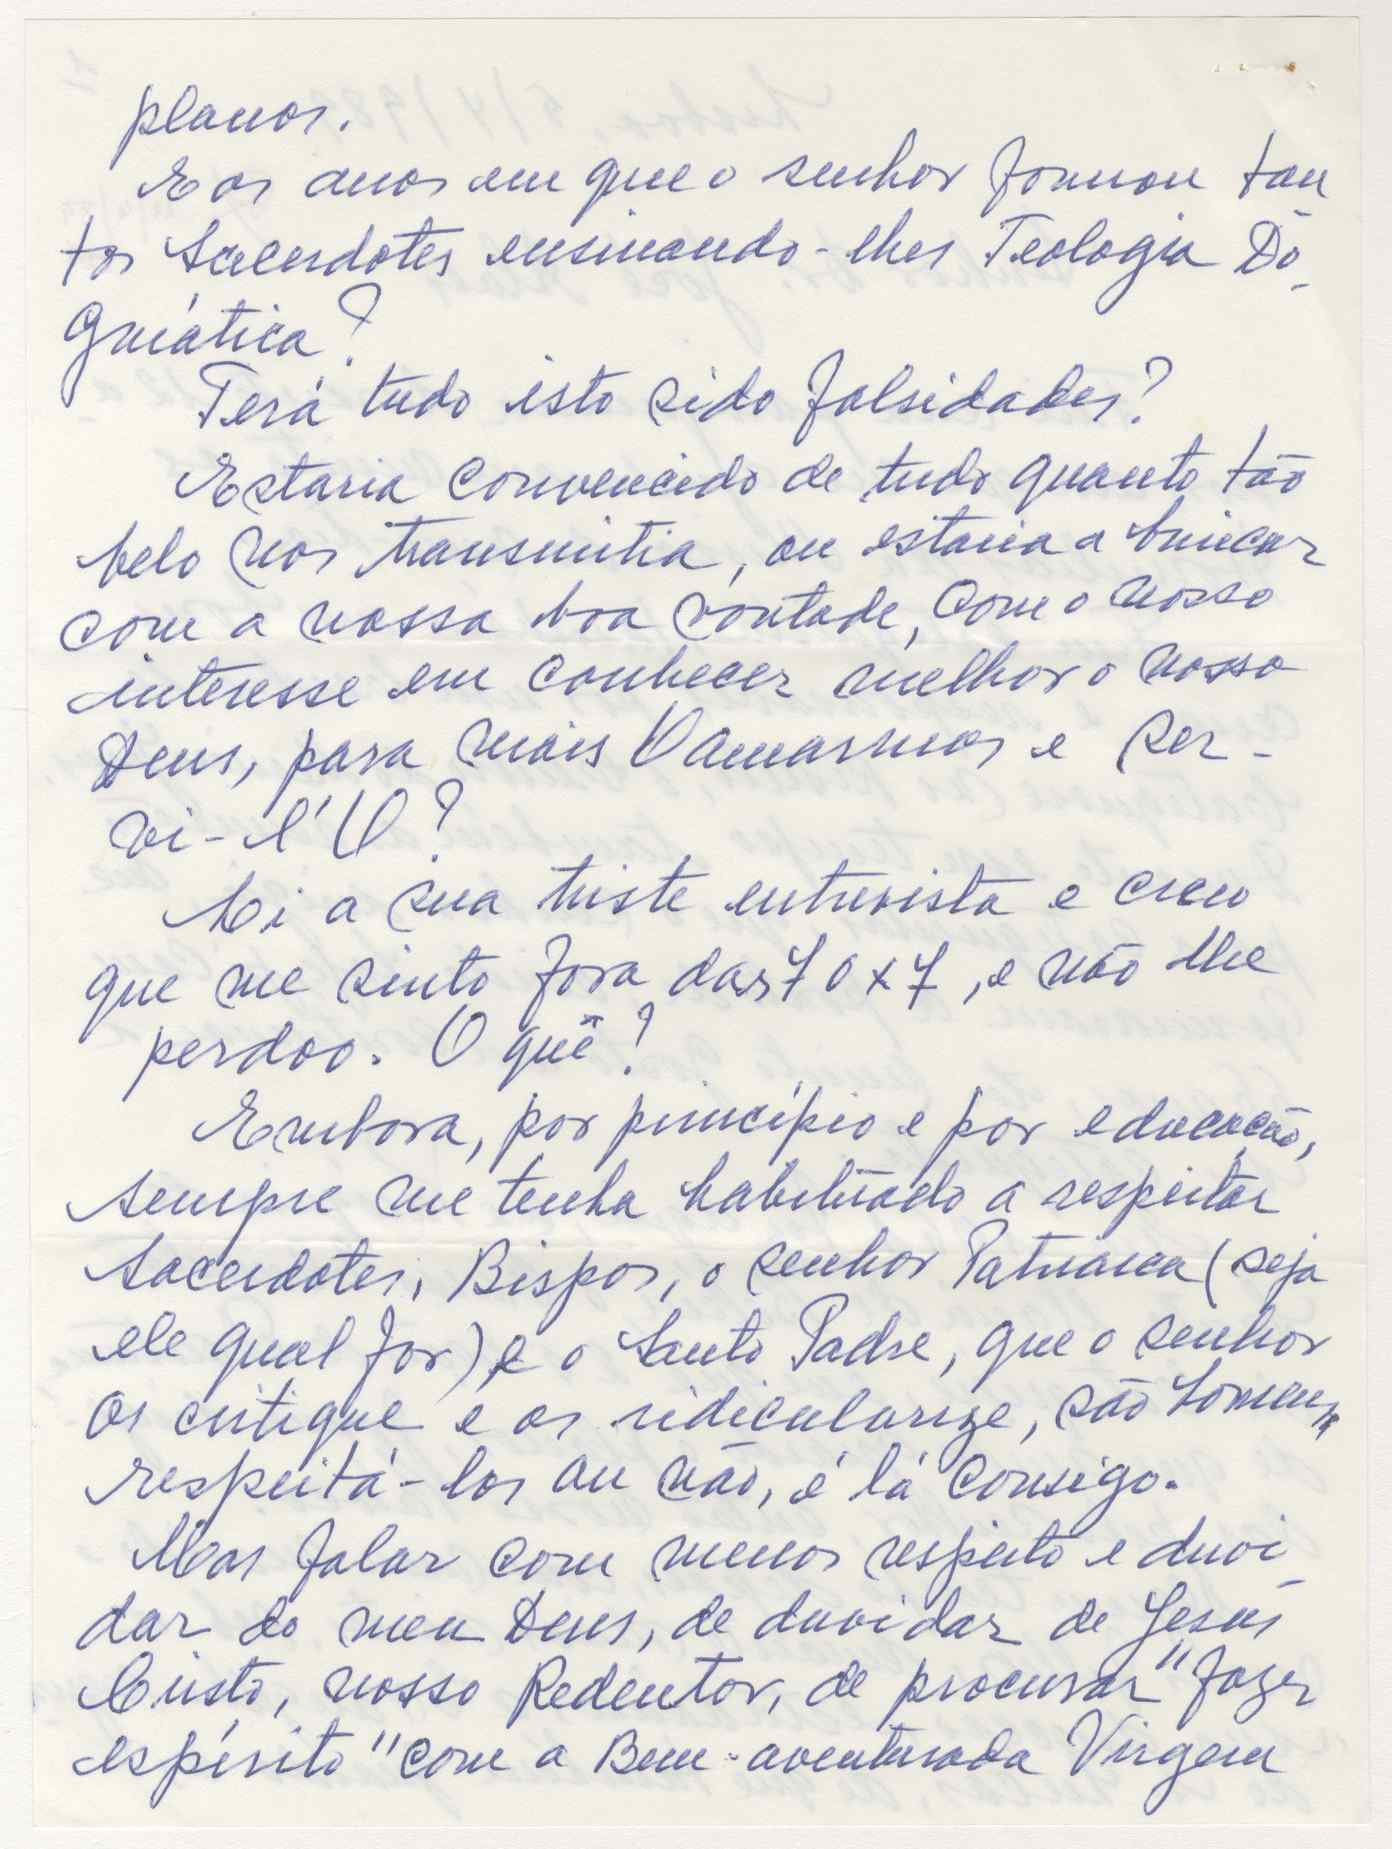 planos.
E os anos em que o senhor formou tan
tos Sacerdotes ensinando-lhes Teologia Do-
gmática?
Terá tudo isto sido falsidades?
Estaria convencido de tudo quanto tão
belo nos transmitia, ou estaria a brincar
com a nossa boa vontade, com o nosso
interesse em conhecer melhor o nosso
Deus, para mais O amarmos e ser-
vi-l'O?
Li a sua triste entrevista e creio
que me sinto fora das 70x7, e não lhe
perdoo. O quê?
Embora, por princípio e por educação,
sempre me tenha habituado a respeitar
Sacerdotes, Bispos, o senhor Patriarca (seja
ele qual for) e o Santo Padre, que o senhor
os critique e os ridicularize, são homens,
respeitá-los ou não, é lá consigo.
Mas falar com menos respeito e duvi
dar do meu Deus, de duvidar de Jesus
Cristo, nosso Redentor, de procurar "fazer
espírito" com a Bem-aventurada Virgem